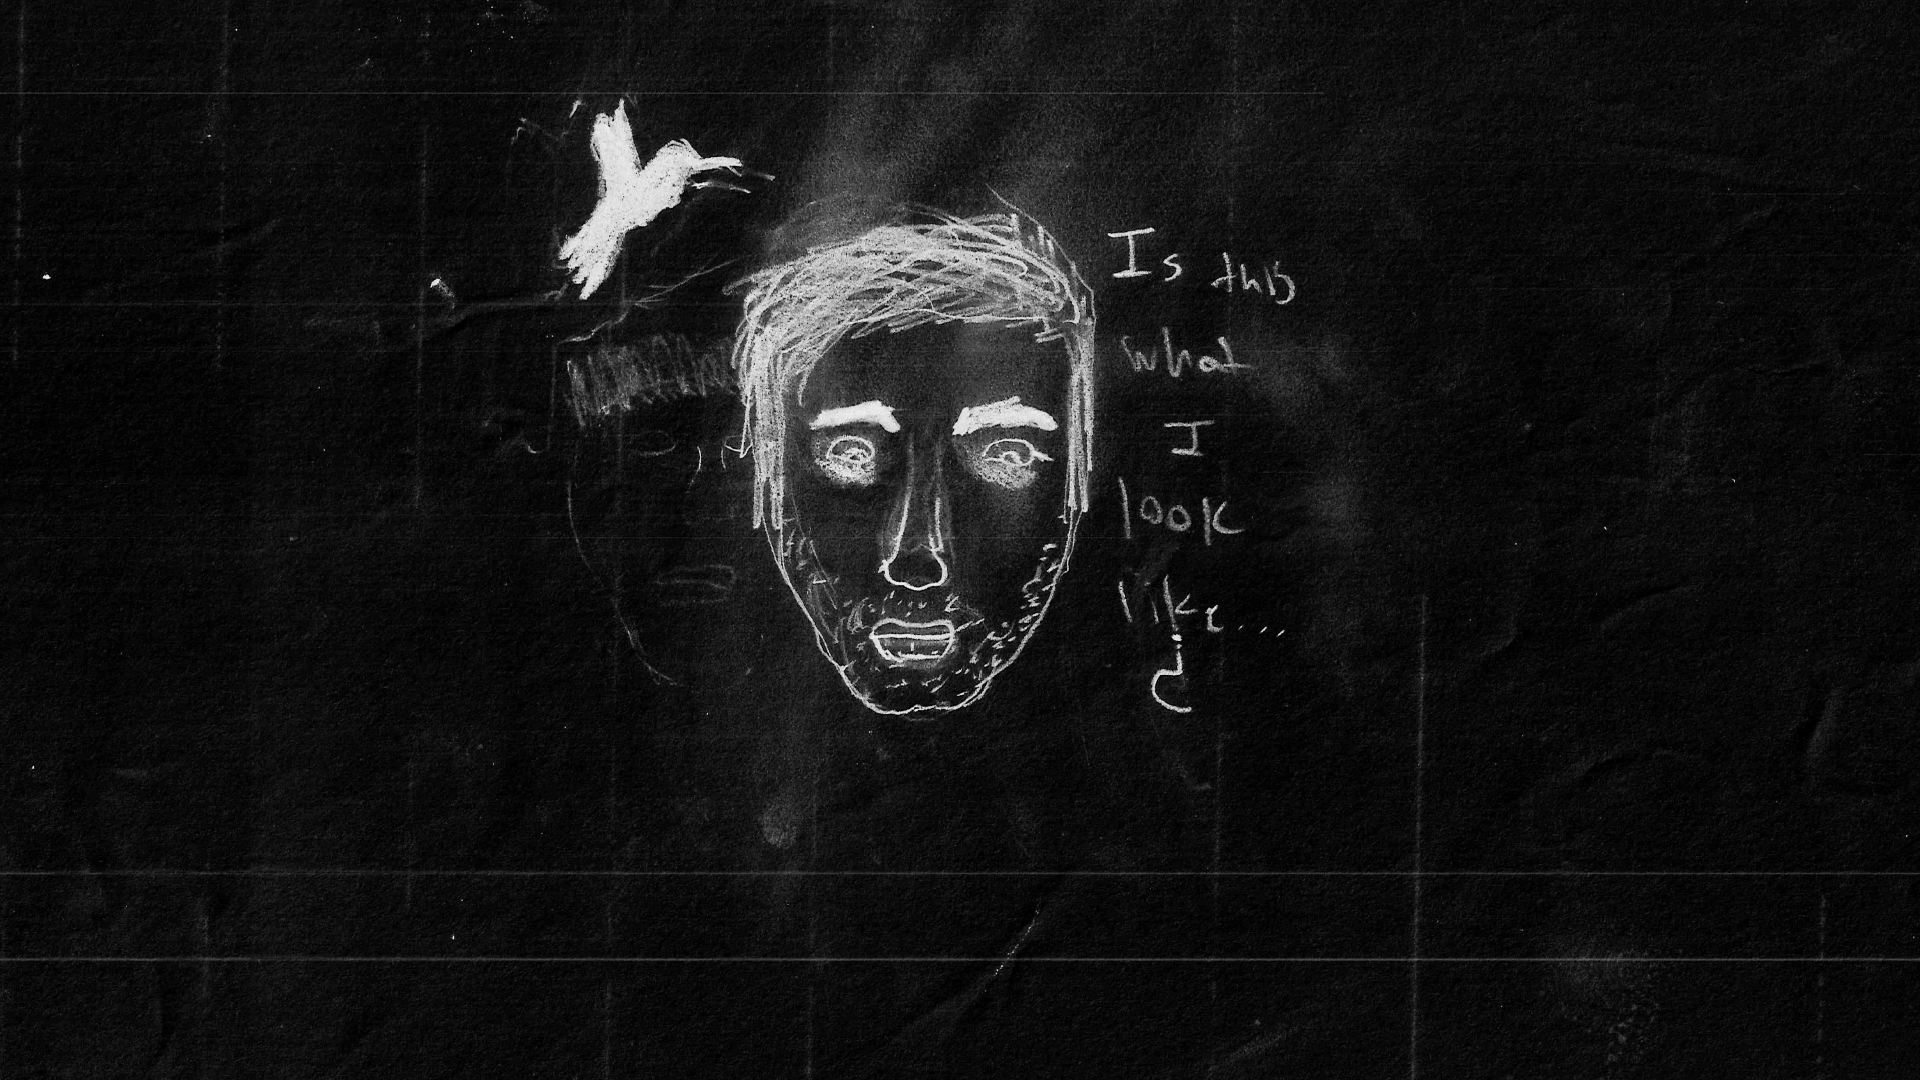 Is this
what
I
look
like...
¿